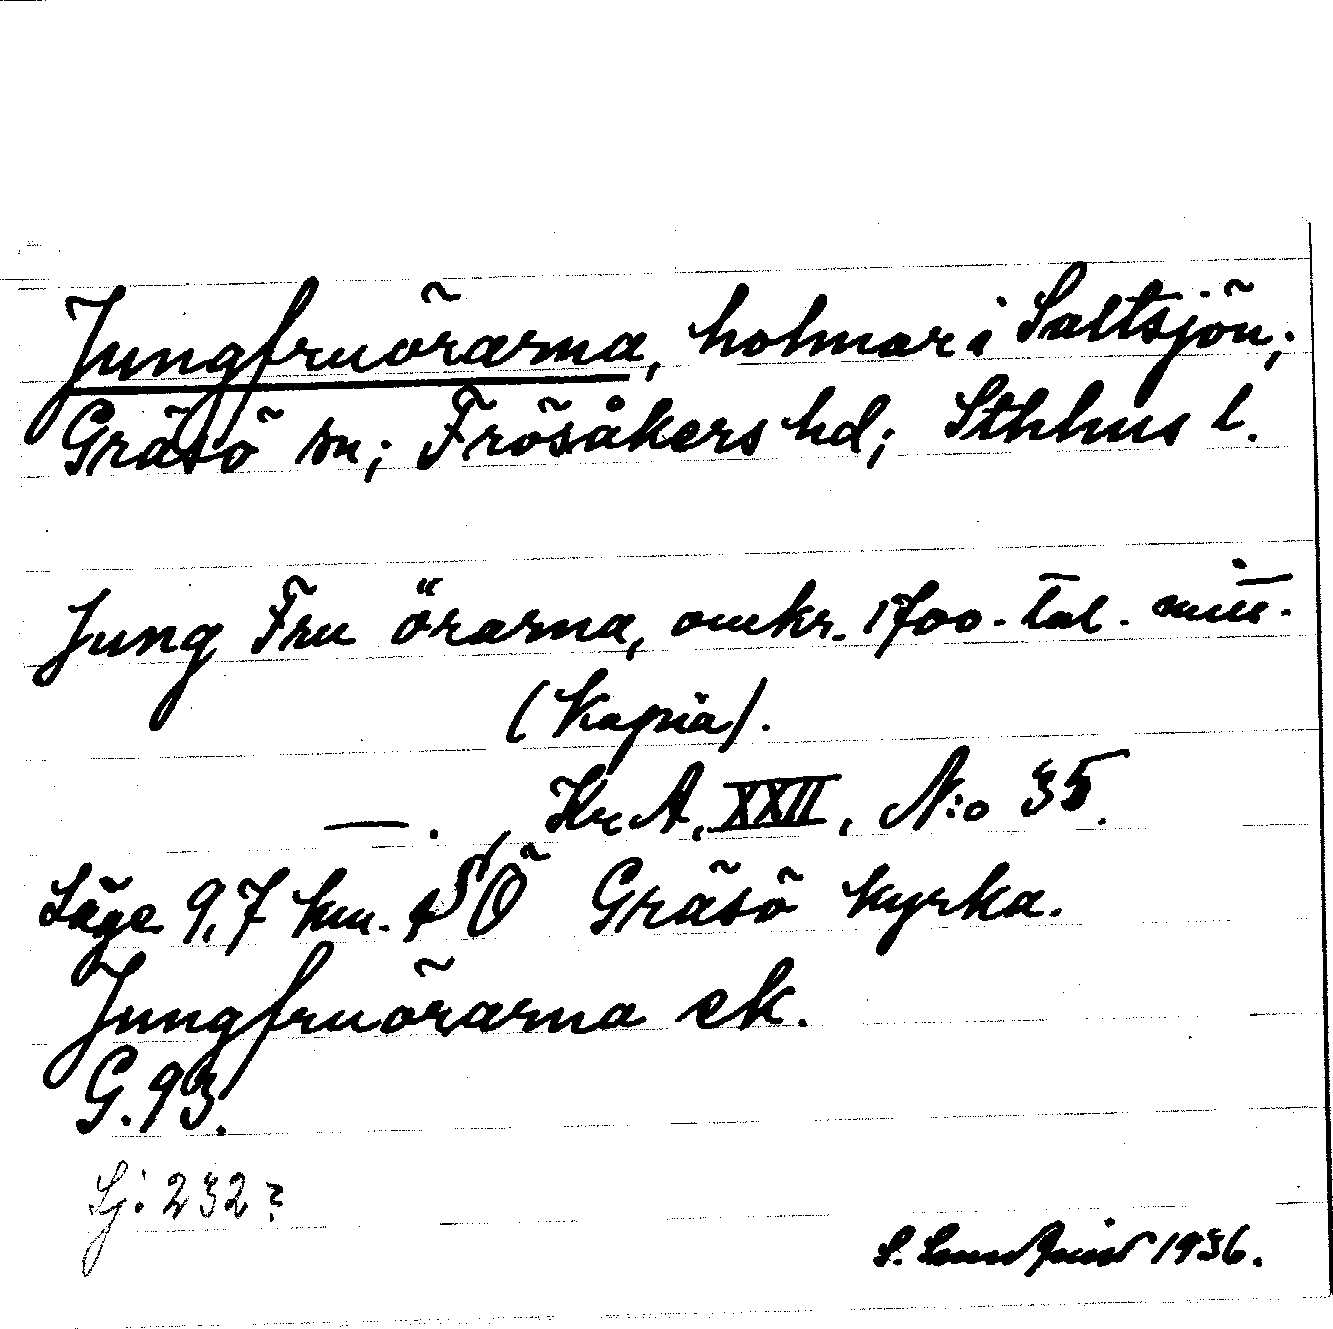 Jungfruörarna, holmar i Saltsjön;
Gräsö sn; Frösåkers hd; Sthlms l.
Jung Fru örarna, omkr. 1700-tal. mitt.
(Kopia).
—. Kr. A. XXII, N:o 35.
Läge 9,7 km. SÖ Gräsö kyrka.
Jungfruörarna ek.
G. 93.
Sj: 232?
S. 1936.